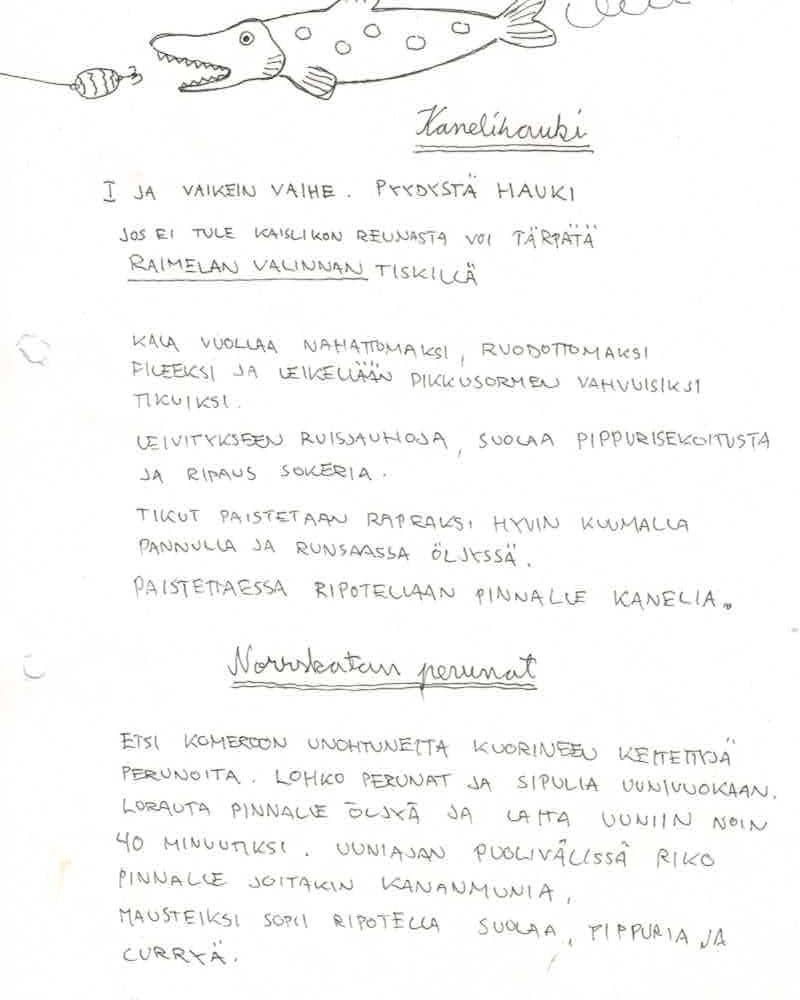 Kanelihauki
I JA VAIKEIN VAIHE. PYYDYSTÄ HAUKI
JOS EI TULE KAISLIKON REUNASTA VOI TÄRPÄTÄ
RAIMELAN VALINNAN TISKILLÄ
KALA VUOLLAA NAHATTOMAKSI, RUODOTTOMAKSI
FILEEKSI JA LEIKELLÄÄN PIKKUSORMEN VAHVUISIKSI
TIKUIKSI.
LEIVITYKSEEN RUISJAUHOJA, SUOLAA PIPPURISEKOITUSTA
JA RIPAUS SOKERIA.
TIKUT PAISTETAAN RAPEAKSI HYVIN KUUMALLA
PANNULLA JA RUNSAASSA ÖLJYSSÄ.
PAISTETTAESSA RIPOTELLAAN PINNALLE KANELIA.
Norrskatan perunat
ETSI KOMEROON UNOHTUNEITA KUORINEEN KEITETTYJÄ
PERUNOITA. LOHKO PERUNAT JA SIPULIA UUNIVUOKAAN.
LORAUTA PINNALLE ÖLJYÄ JA LAITA UUNIIN NOIN
40 MINUUTIKSI. UUNIAJAN PUOLIVÄLISSÄ RIKO
PINNALLE JOITAKIN KANANMUNIA,
MAUSTEIKSI SOPII RIPOTELLA SUOLAA, PIPPURIA JA
CURRYÄ.